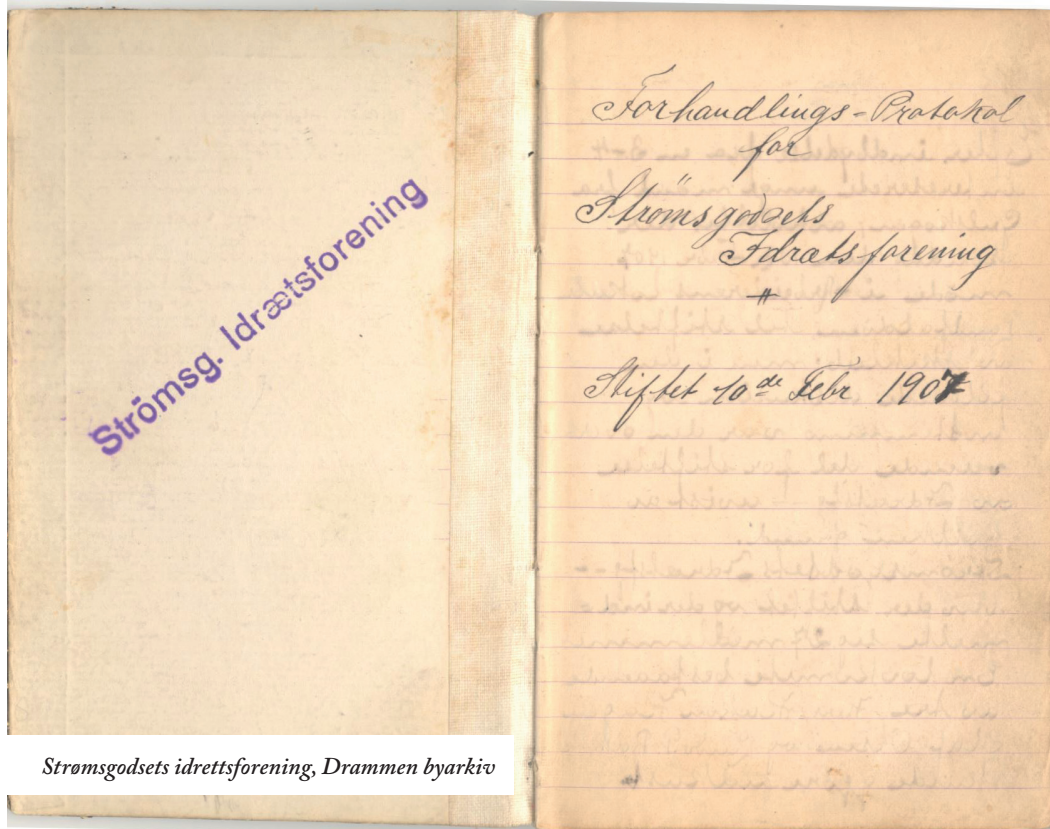 Strömsg. Idrætsforening
Forhandlings-Protokol
for
Strömsgodsets
Idrætsforening
"
Stiftet 10de Febr 1907
Strømsgodsets idrettsforening, Drammen byarkiv